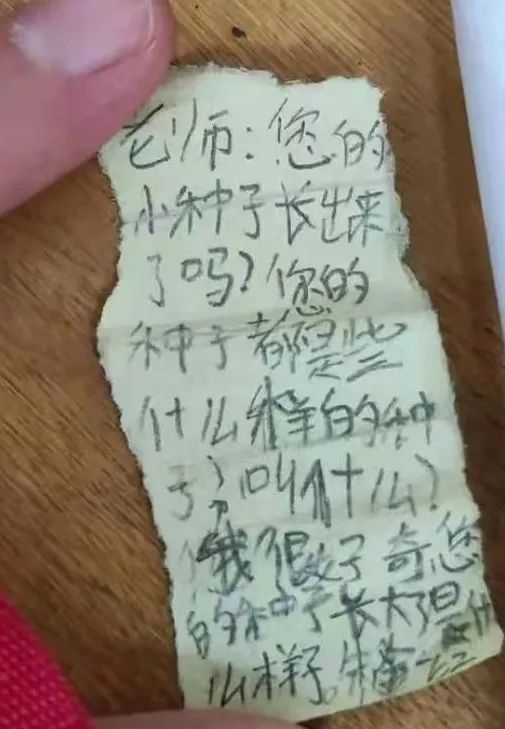 老师:您的
小种子长出来
了吗?您的
种子都是些
什么样的种
子?叫什么?
我很好奇您
的种子长大了是什
么样子。